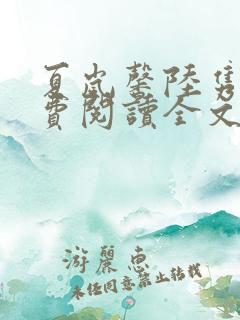 夏岚馨陆隽
费阅读全文
游丽惠
未经同意禁止转载